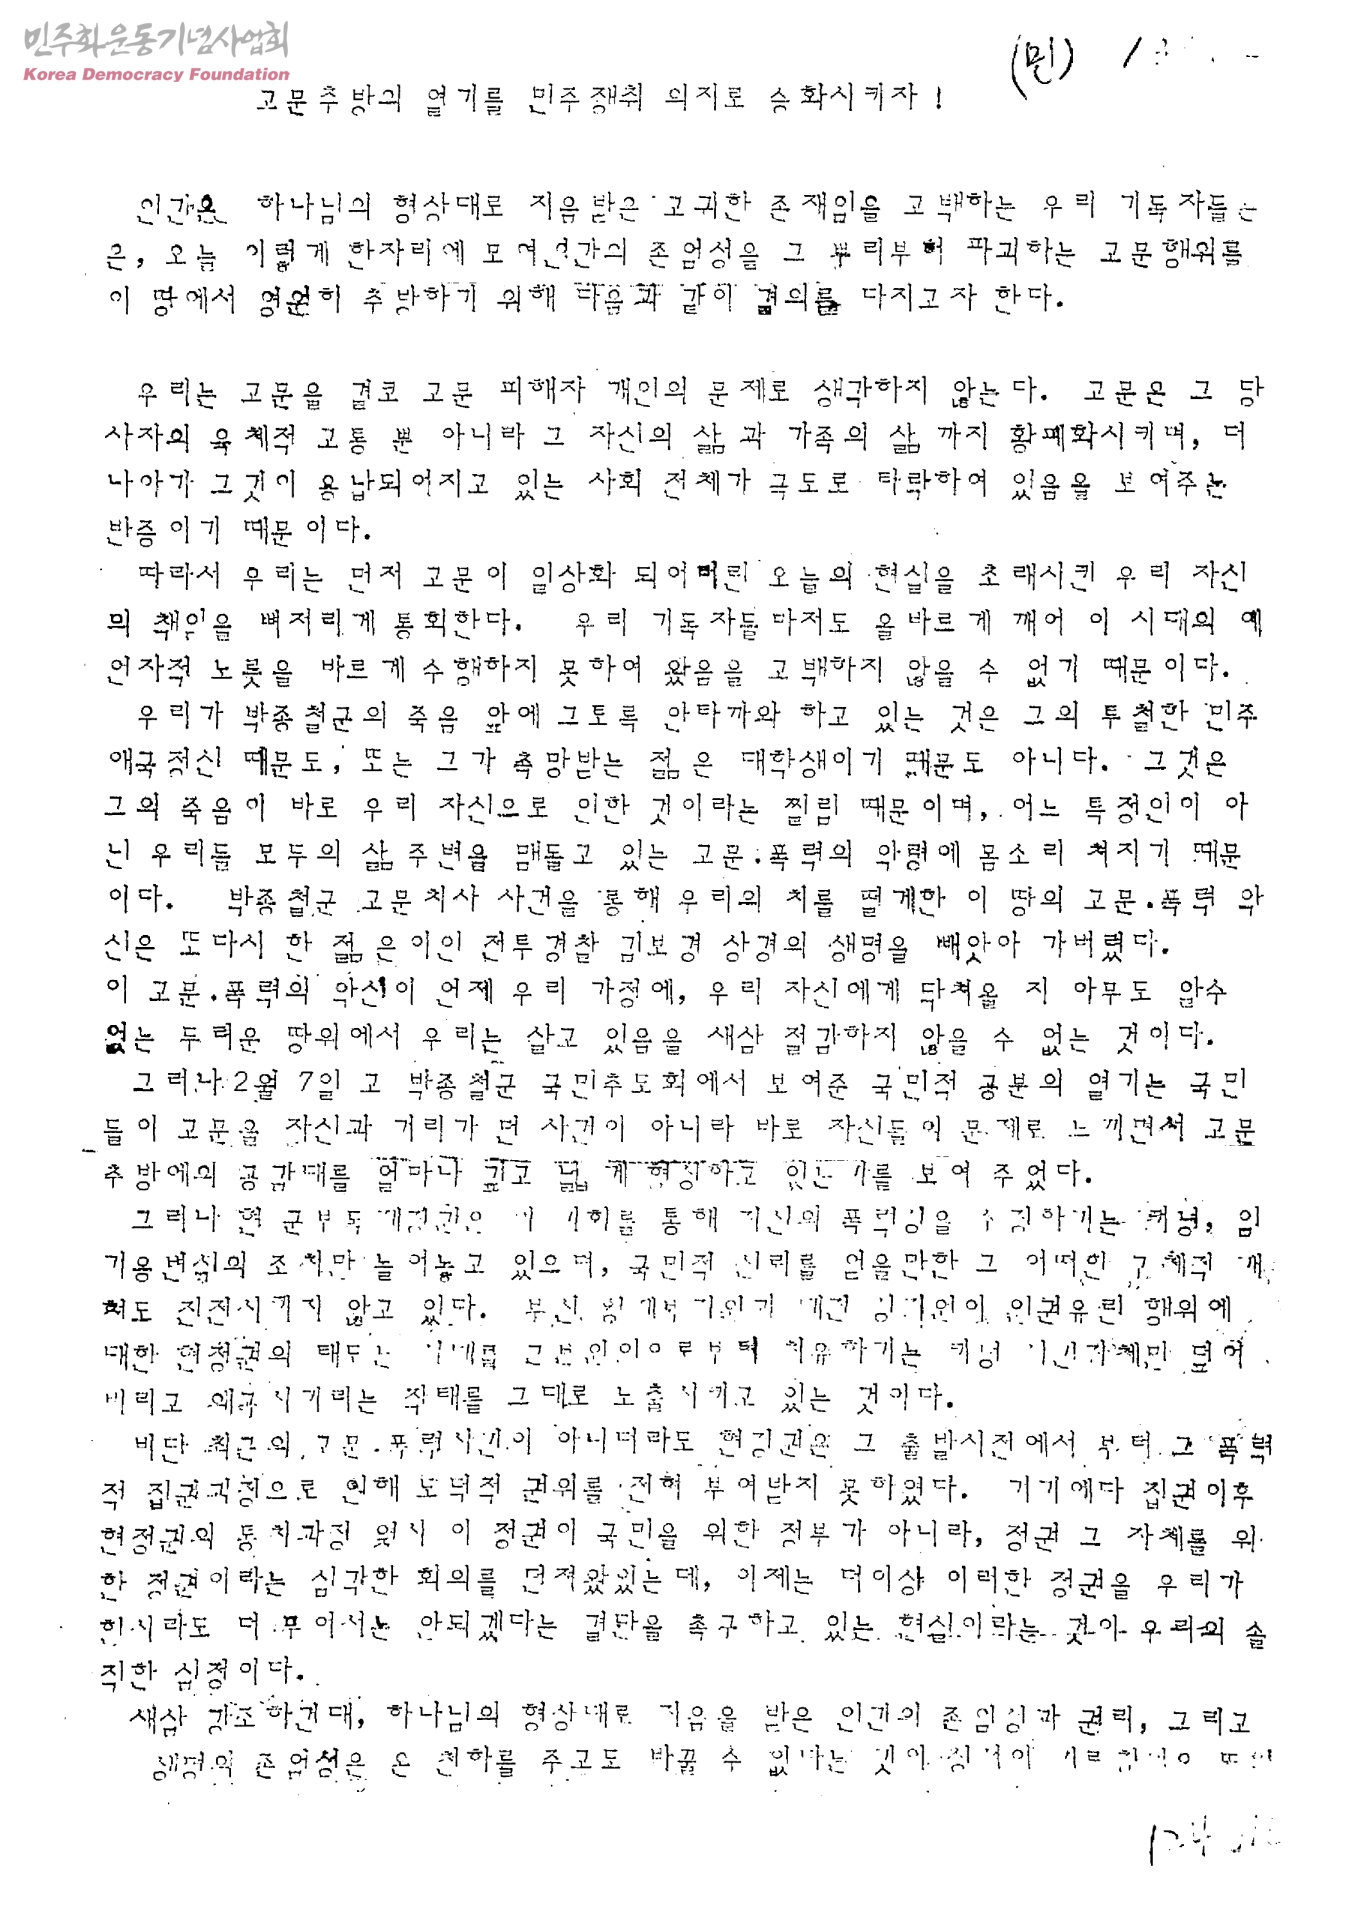 민주화운동기념사업회
Korea Democracy Foundation
(민) /
고문추방의 열기를 민주쟁취 의지로 승화시키자 !
인간은 하나님의 형상대로 지음받은 고귀한 존재임을 고백하는 우리 기독자들는
은, 오늘 이렇게 한자리에 모여인간의 존엄성을 그 뿌리부터 파괴하는 고문행위를
이 땅에서 영원히 추방하기 위해 다음과 같이 결의를 다지고자 한다.
우리는 고문을 결코 고문 피해자 개인의 문제로 생각하지 않는다. 고문은 그 당
사자의 육체적 고통 뿐 아니라 그 자신의 삶과 가족의 삶까지 황폐화시키며, 더
나아가 그것이 용납되어지고 있는 사회 전체가 극도로 타락하여 있음을 보여주는
반증이기 때문이다.
따라서 우리는 먼저 고문이 일상화 되어버린 오늘의 현실을 초래시킨 우리 자신
의 책임을 뼈저리게 통회한다. 우리 기독자들마저도 올바르게 깨어 이 시대의 예
언자적 노릇을 바르게 수행하지 못하여 왔음을 고백하지 않을 수 없기 때문이다.
우리가 박종철군의 죽음 앞에 그토록 안타까와 하고 있는 것은 그의 투철한 민주
애국정신 때문도, 또는 그가 촉망받는 젊은 대학생이기 때문도 아니다. 그것은
그의 죽음이 바로 우리 자신으로 인한 것이라는 찔림 때문이며, 어느 특정인이 아
닌 우리들 모두의 삶주변을 맴돌고 있는 고문.폭력의 악령에 몸소리 쳐지기 때문
이다. 박종철군 고문치사 사건을 통해 우리의 치를 떨게한 이 땅의 고문.폭력 악
신은 또다시 한 젊은이인 전투경찰 김보경 상경의 생명을 빼앗아 가버렸다.
이 고문.폭력의 악신이 언제 우리 가정에, 우리 자신에게 닥쳐올 지 아무도 알수
없는 두려운 땅위에서 우리는 살고 있음을 새삼 절감하지 않을 수 없는 것이다.
그러나 2월 7일 고 박종철군 국민추도회에서 보여준 국민적 공분의 열기는 국민
들이 고문을 자신과 거리가 먼 사건이 아니라 바로 자신들의 문제로 느끼면서 고문
추방에의 공감대를 얼마나 깊고 넓게 형성하고 있는가를 보여 주었다.
그러나 현 군부독재정권은 이 기회를 통해 자신의 폭력성을 수정하기는 커녕, 임
기응변식의 조치만 늘어놓고 있으며, 국민적 신뢰를 얻을만한 그 어떠한 구체적 개
도 진전시키지 않고 있다. 부산 인권유린 행위에
대한 현정권의 태도는 치유하기는 커녕 덮어
버리고 왜곡시키려는 작태를 그대로 노출시키고 있는 것이다.
비단 최근의 고문.폭력사건이 아니더라도 현정권은 그 출발시점에서 부터 그 폭력
적 집권과정으로 인해 도덕적 권위를 전혀 부여받지 못하였다. 거기에다 집권이후
현정권의 통치과정 역시 이 정권이 국민을 위한 정부가 아니라, 정권 그 자체를 위
한 정권이라는 심각한 회의를 던져왔었는데, 이제는 더이상 이러한 정권을 우리가
한시라도 더 두어서는 안되겠다는 결단을 촉구하고 있는 현실이라는 것이 우리의 솔
직한 심정이다.
새삼 강조하건대, 하나님의 형상대로 지음을 받은 인간의 존엄성과 권리, 그리고
생명의 존엄성은 온 천하를 주고도 바꿀 수 없다는 것이